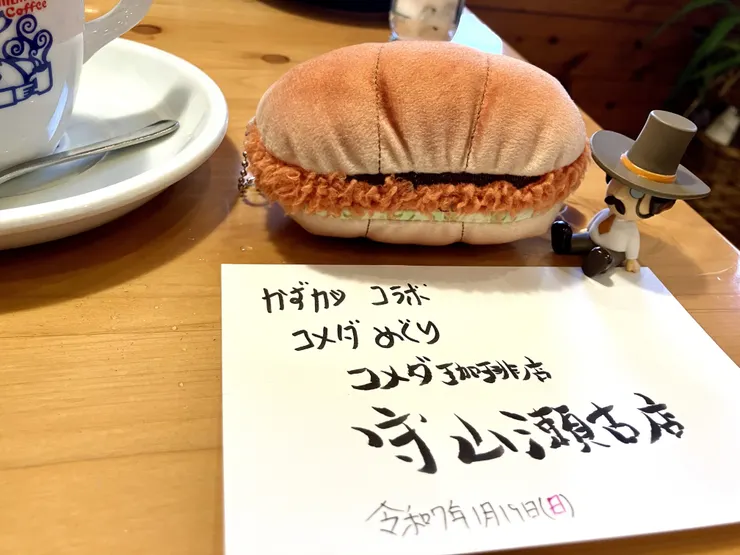 Coffee
かずカツ コラボ
コメダ めぐり
コメダ珈琲店
守山瀬古店
令和7年1月19(日)